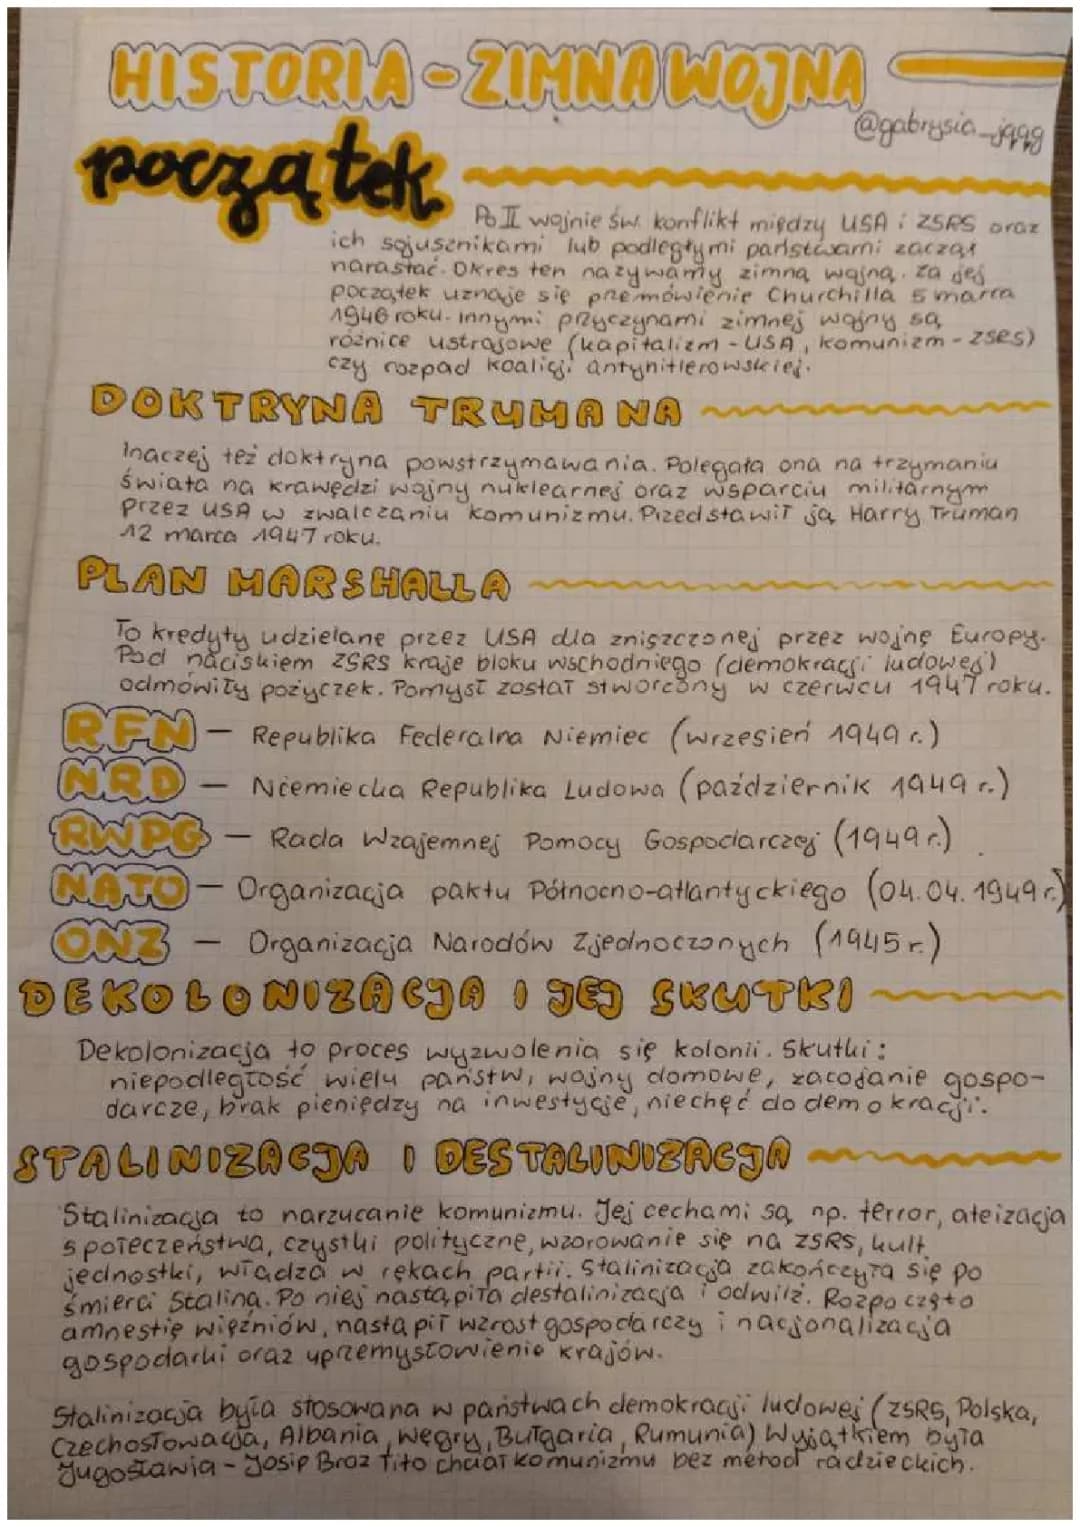 HISTORIA - ZIMNA WOJNA
@gabrysia_jqqg
początek
Po II wojnie św. konflikt między USA i ZSRS oraz
ich sojusznikami lub podległymi państwami zaczął
narastać. Okres ten nazywamy zimną wojną. Za jej
początek uznaje się przemówienie Churchilla 5 marca
1946 roku. Innymi przyczynami zimnej wojny są
różnice ustrojowe (kapitalizm - USA, komunizm - ZSRS)
czy rozpad koalicji antyhitlerowskiej.
DOKTRYNA TRUMANA
Inaczej też doktryna powstrzymawania. Polegała ona na trzymaniu
świata na krawędzi wojny nuklearnej oraz wsparciu militarnym
przez USA w zwalczaniu komunizmu. Przedstawił ją Harry Truman
12 marca 1947 roku.
PLAN MARSHALLA
To kredyty udzielane przez USA dla zniszczonej przez wojnę Europy.
Pod naciskiem ZSRS kraje bloku wschodniego (demokracji ludowej)
odmówiły pożyczek. Pomysł został stworzony w czerwcu 1947 roku.
RFN - Republika Federalna Niemiec (wrzesień 1949 r.)
NRD - Niemiecka Republika Ludowa (październik 1949 r.)
RWPG - Rada Wzajemnej Pomocy Gospodarczej (1949 r.)
NATO - Organizacja paktu Północno-atlantyckiego (04.04.1949 r.)
ONZ - Organizacja Narodów Zjednoczonych (1945 r.)
DEKOLONIZACJA I JEJ SKUTKI
Dekolonizacja to proces wyzwolenia się kolonii. Skutki:
niepodległość wielu państw, wojny domowe, zacofanie gospo-
darcze, brak pieniędzy na inwestycje, niechęć do demokracji.
STALINIZACJA I DESTALINIZACJA
Stalinizacja to narzucanie komunizmu. Jej cechami są np. terror, ateizacja
społeczeństwa, czystki polityczne, wzorowanie się na ZSRS, kult
jednostki, władza w rękach partii. Stalinizacja zakończyła się po
śmierci Stalina. Po niej nastąpiła destalinizacja i odwilż. Rozpoczęto
amnestię więźniów, nastąpił wzrost gospodarczy i nacjonalizacja
gospodarki oraz uprzemysłowienie krajów.
Stalinizacja była stosowana w państwach demokracji ludowej (ZSRS, Polska,
Czechosłowacja, Albania, Węgry, Bułgaria, Rumunia) Wyjątkiem była
Jugosławia - Josip Broz Tito chciał komunizmu bez metod radzieckich.